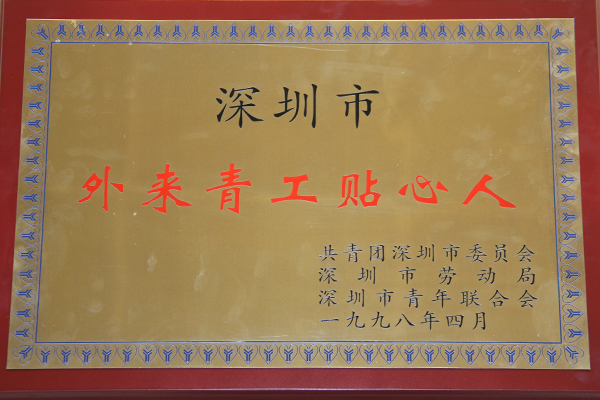 深圳市
外来青工贴心人
共青团深圳市委员会
深圳市劳动局
深圳市青年联合会
一九九八年四月